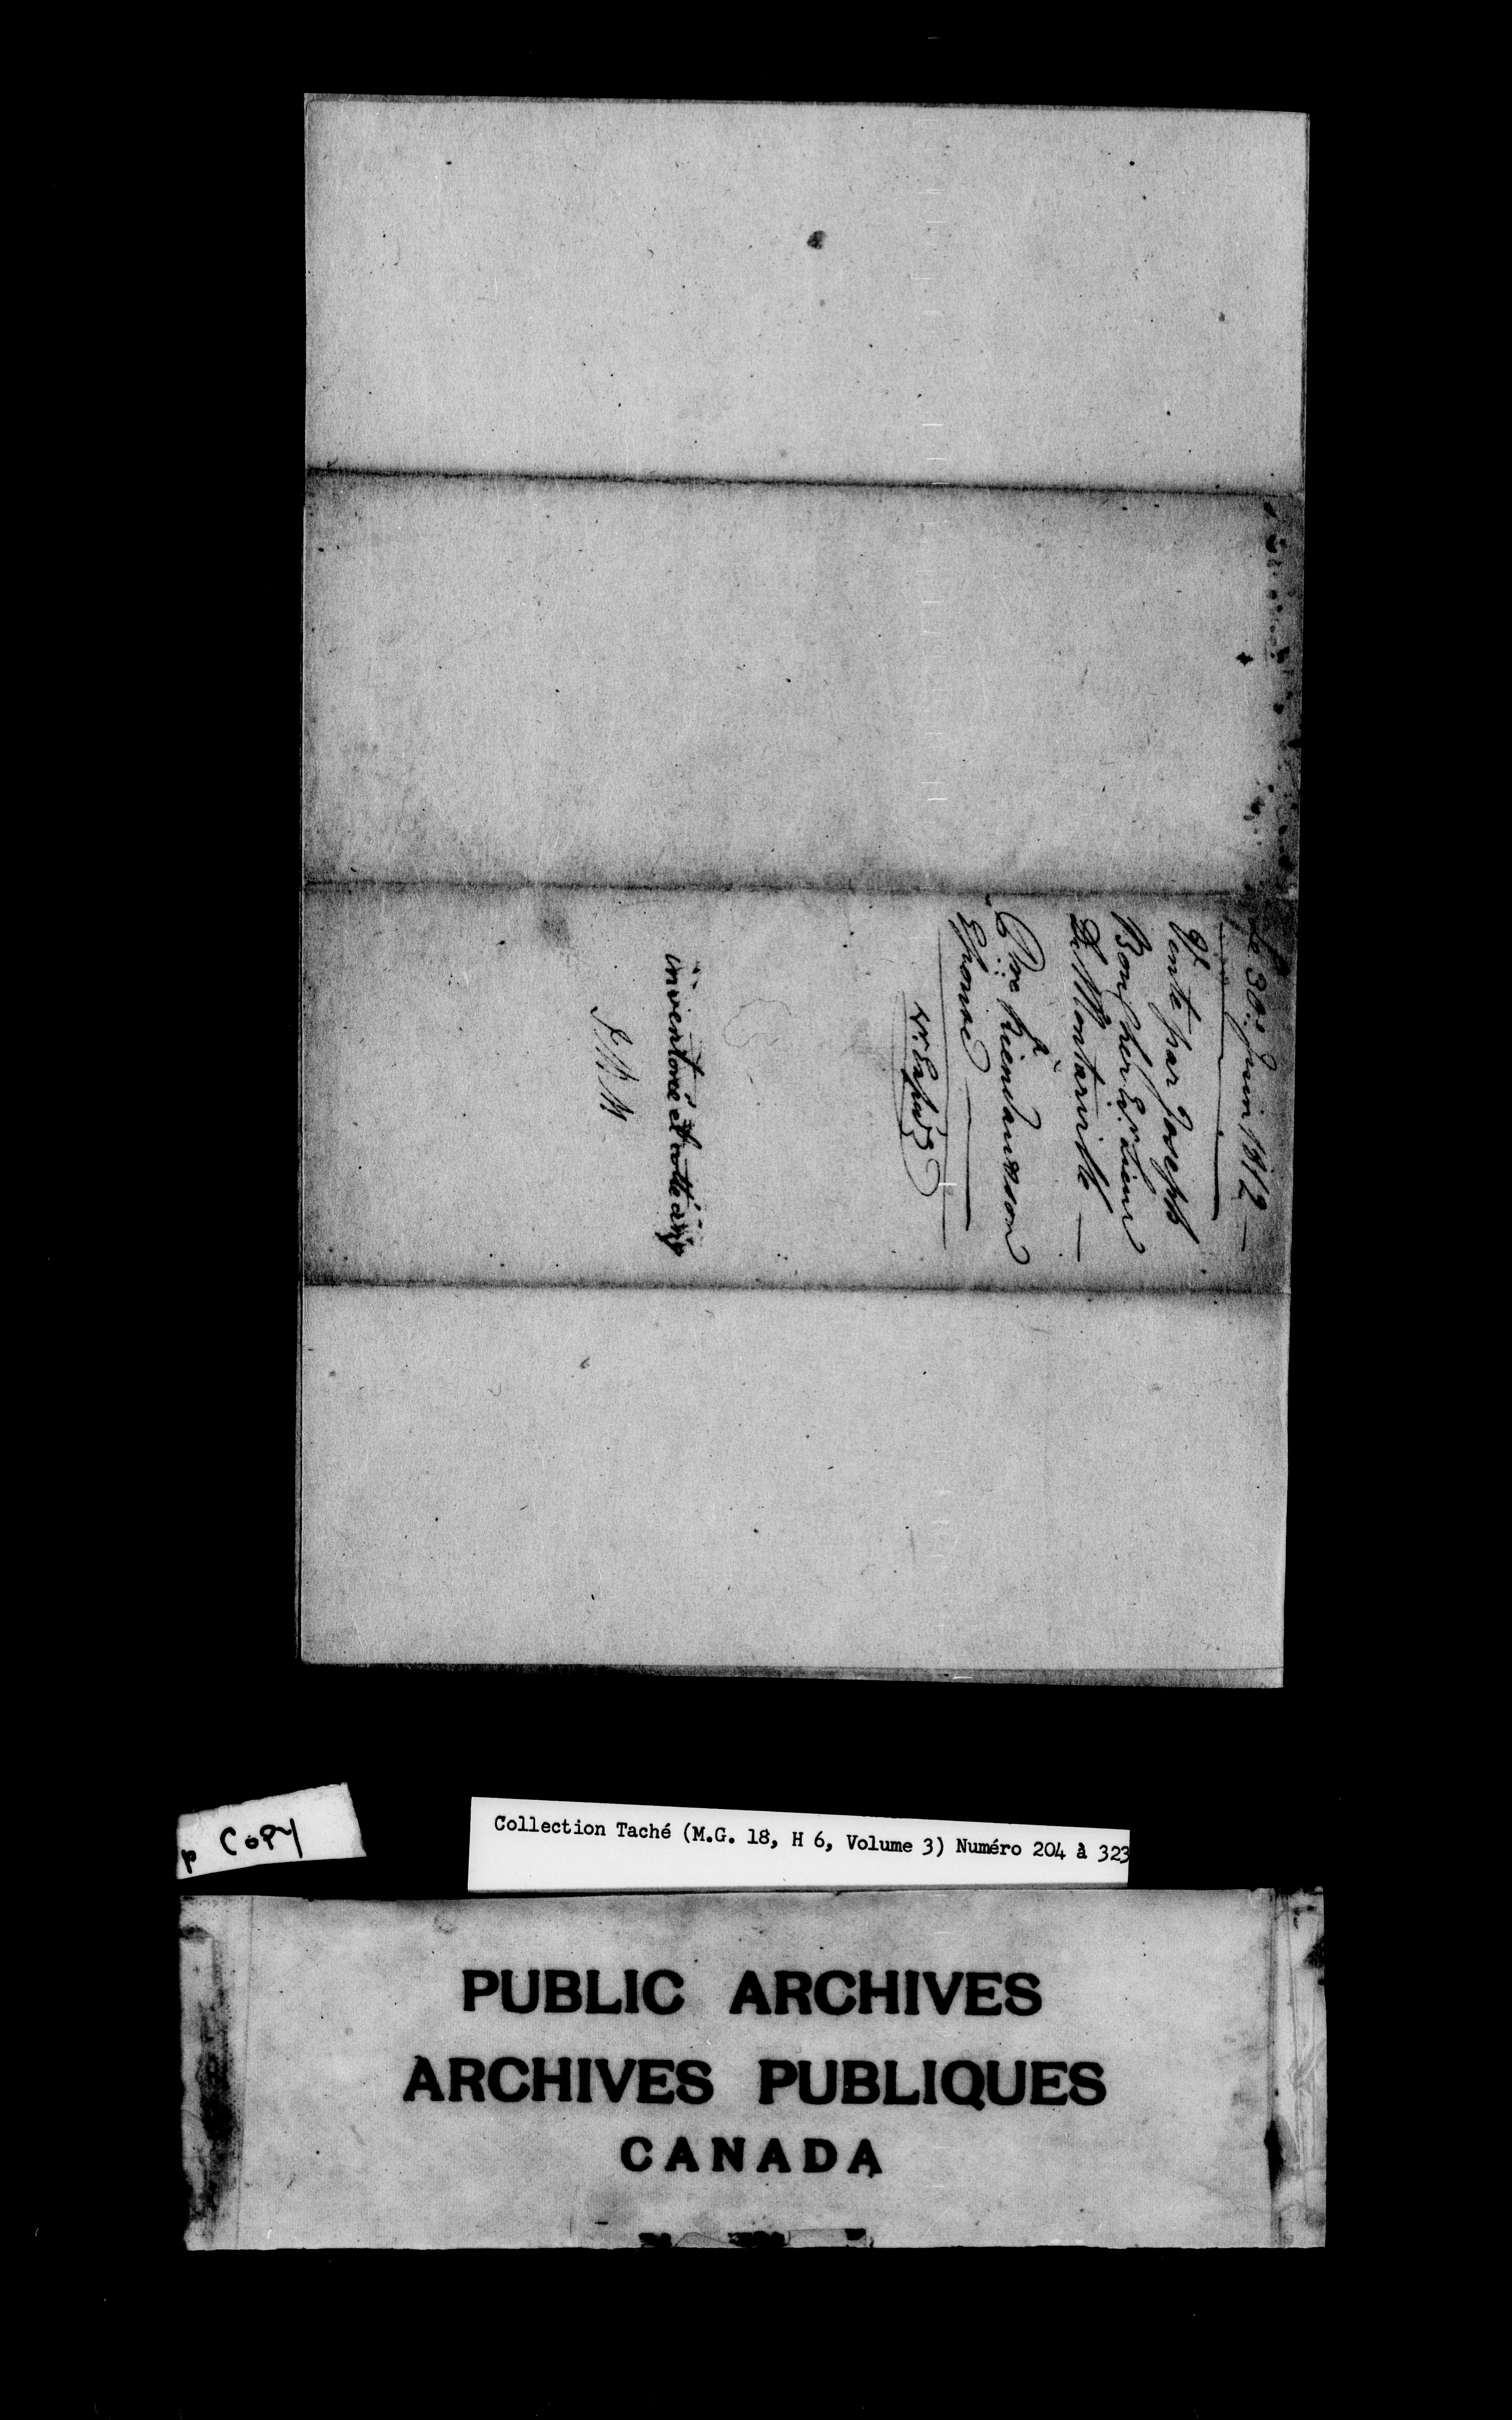 Le 30. Juin 1812 —
Vente par Joseph
Boucher Ecr. Sieur
De Montarville —
à
Pre Riendau & son
Epouse —
inventorée et cottée
COPY
Collection Taché (M.G. 18, H 6, Volume 3) Numéro 204 à 323
PUBLIC ARCHIVES
ARCHIVES PUBLIQUES
CANADA